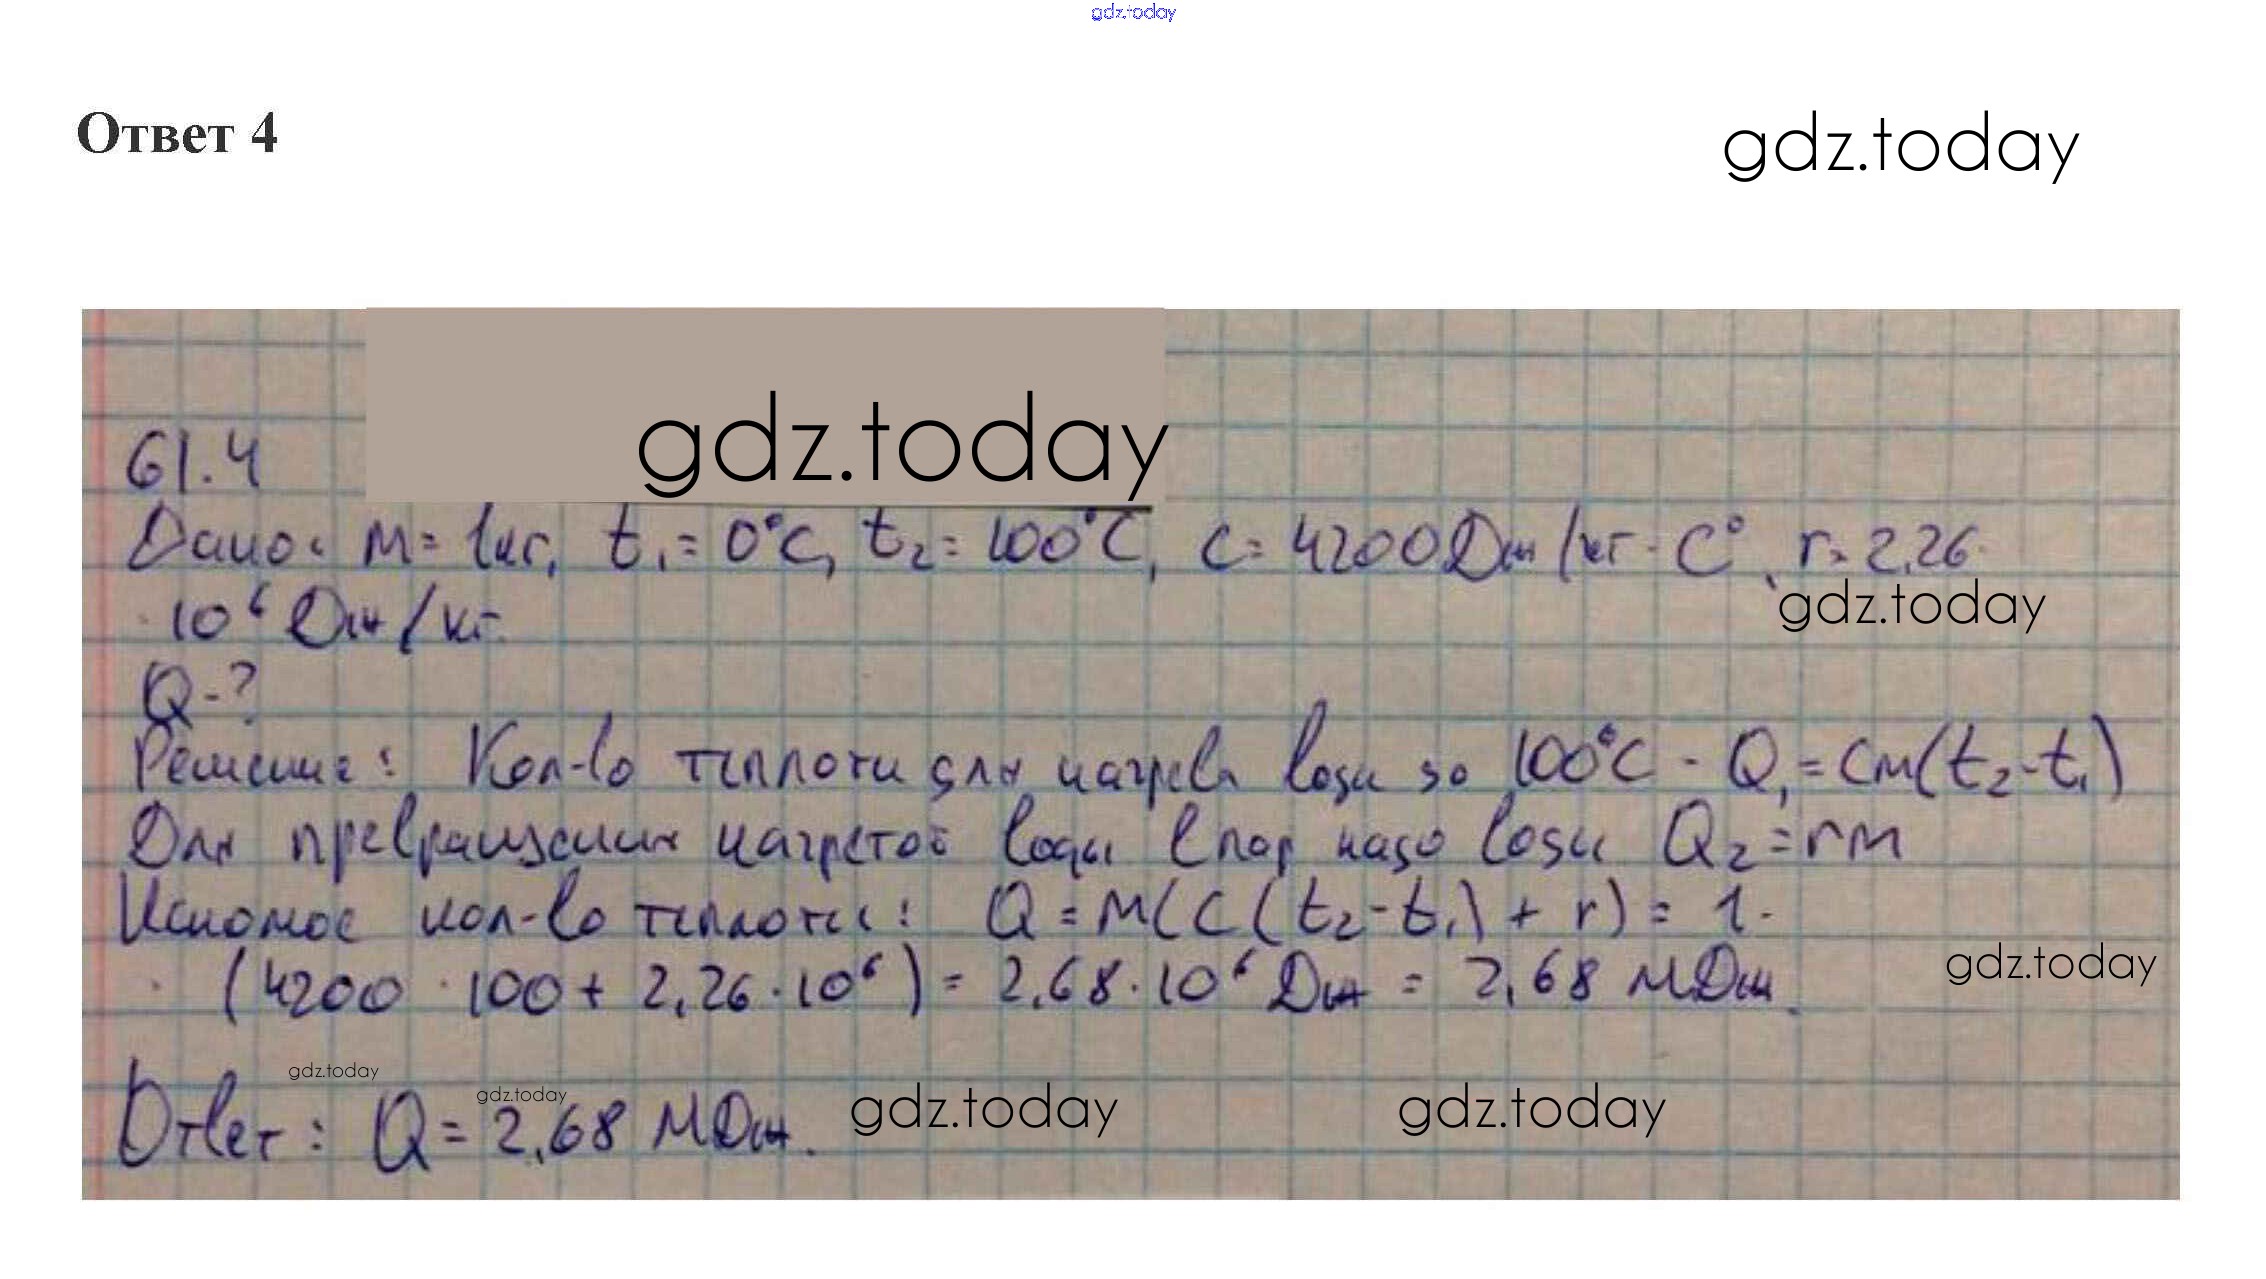 gdz.today
Ответ 4
gdz.today
gdz.today
61.4
Дано: m = 1кг, t₁ = 0°C, t₂ = 100°C, c = 4200Дж/кг·C°, r = 2,26·
·10⁶ Дж/кг.
gdz.today
Q-?
Решение: Кол-во теплоты для нагрева воды до 100°C - Q₁ = cm(t₂-t₁)
Для превращения нагретой воды в пар надо воды Q₂ = rm
Искомое кол-во теплоты: Q = m(c(t₂-t₁) + r) = 1·
·(4200 · 100 + 2,26 · 10⁶) = 2,68 · 10⁶ Дж = 2,68 МДж.
gdz.today
gdz.today
gdz.today
Ответ: Q = 2,68 МДж.
gdz.today
gdz.today